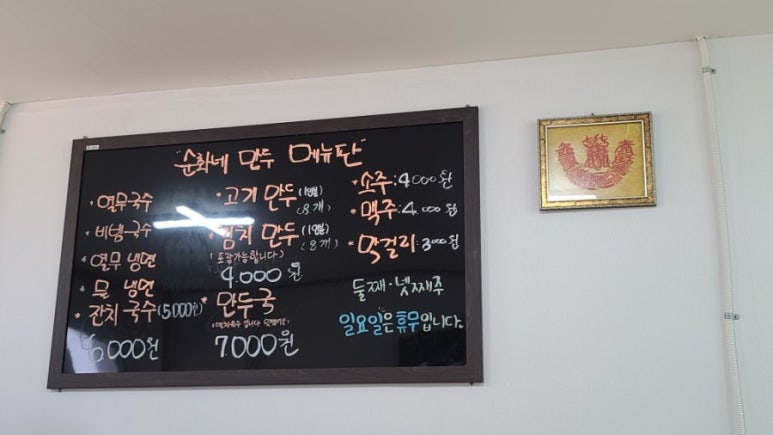 "순화네 만두 메뉴판"
· 열무국수
· 비빔국수
· 열무 냉면
· 물 냉면
· 잔치 국수 (5,000원)
6,000원
· 고기 만두 (1인분) (8개)
· 김치 만두 (1인분) (8개)
(포장가능합니다)
4.000원
· 만두국
7000원
· 소주: 4000원
· 맥주: 4,000원
· 막걸리: 3000원
둘째·넷째주
일요일은 휴무입니다.